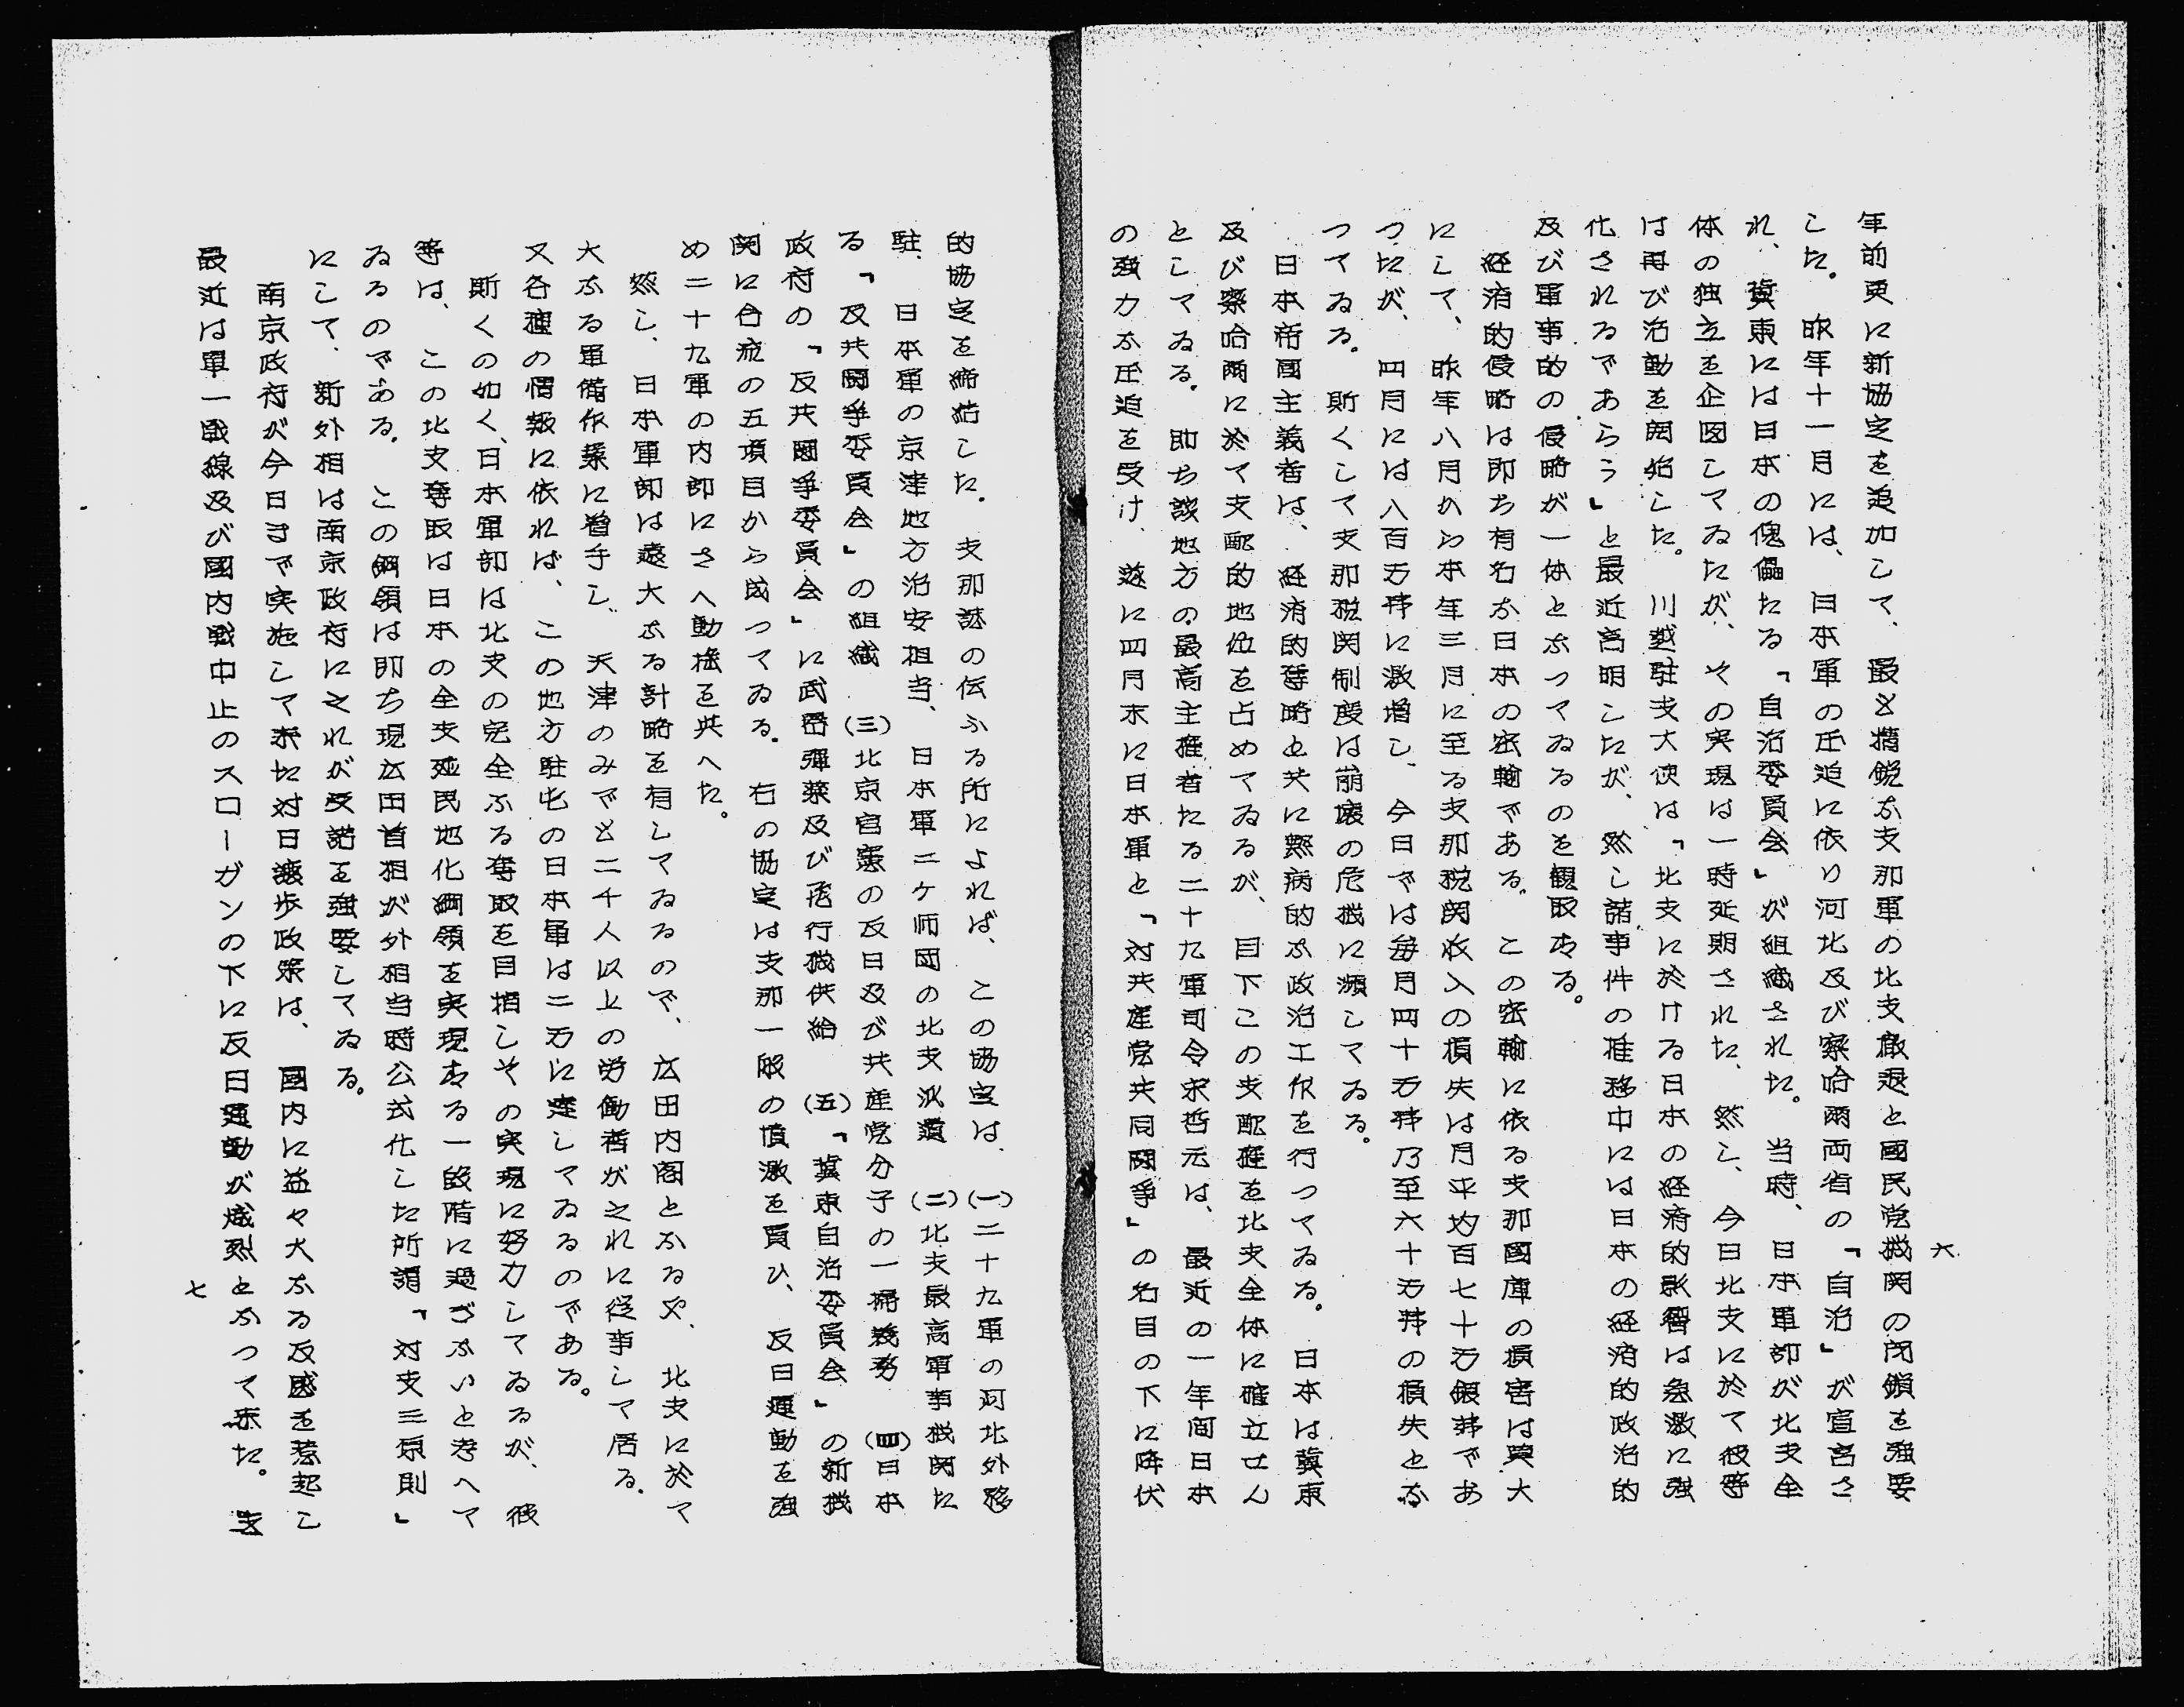 六
年前更に新協定を追加して、最も精鋭な支那軍の北支撤退と國民党機関の閉鎖を強要
した。昨年十一月には、日本軍の圧迫に依り河北及び察哈爾両省の「自治」が宣言さ
れ、冀東には日本の傀儡たる「自治委員会」が組織された。当時、日本軍部が北支全
体の独立を企図してゐたが、その実現は一時延期された、然し、今日北支に於て彼等
は再び活動を開始した。川越駐支大使は「北支に於ける日本の経済的影響は急激に強
化されるであらう」と最近言明したが、然し諸事件の推移中には日本の経済的政治的
及び軍事的の侵略が一体となつてゐるのを観取する。
経済的侵略は即ち有名な日本の密輸である。この密輸に依る支那國庫の損害は莫大
にして、昨年八月から本年三月に至る支那税関收入の損失は月平均百七十万銀弗であ
つたが、四月には八百万弗に激増し、今日では毎月四十万弗乃至六十万弗の損失とな
つてゐる。斯くして支那税関制度は崩壊の危機に瀕してゐる。
日本帝國主義者は、経済的奪略と共に熱病的な政治工作を行つてゐる。日本は冀東
及び察哈爾に於て支配的地位を占めてゐるが、目下この支配権を北支全体に確立せん
としてゐる。即ち該地方の最高主権者たる二十九軍司令宋哲元は、最近の一年間日本
の強力な圧迫を受け、遂に四月末に日本軍と「対共産党共同闘争」の名目の下に降伏
的協定を締結した。支那誌の伝ふる所によれば、この協定は、(一)二十九軍の河北外移
駐、日本軍の京津地方治安担当、日本軍二ケ师団の北支派遣 (二)北支最高軍事機関た
る「反共闘争委員会」の組織 (三)北京官憲の反日及び共産党分子の一掃義務 (四)日本
政府の「反共闘争委員会」に武器弾薬及び飛行機供給 (五)「冀東自治委員会」の新機
関に合流の五項目から成つてゐる。右の協定は支那一般の憤激を買ひ、反日運動を強
め二十九軍の内部にさへ動揺を共へた。
然し、日本軍部は遠大なる計略を有してゐるので、広田内閣となるや、北支に於て
大なる軍備作業に着手し、天津のみでも二千人以上の労働者が之れに従事して居る。
又各種の情報に依れば、この地方駐屯の日本軍は二万に達してゐるのである。
斯くの如く、日本軍部は北支の完全なる奪取を目指しその実現に努力してゐるが、彼
等は、この北支奪取は日本の全支殖民地化綱領を実現する一段階に過ぎないと考へて
ゐるのである。この綱領は即ち現広田首相が外相当時公式化した所謂「対支三原則」
にして、新外相は南京政府に之れが受諾を強要してゐる。
南京政府が今日まで実施して来た対日譲歩政策は、國内に益々大なる反感を惹起し
最近は軍一戦線及び國内戦中止のスローガンの下に反日運動が熾烈となつて来た。支
七